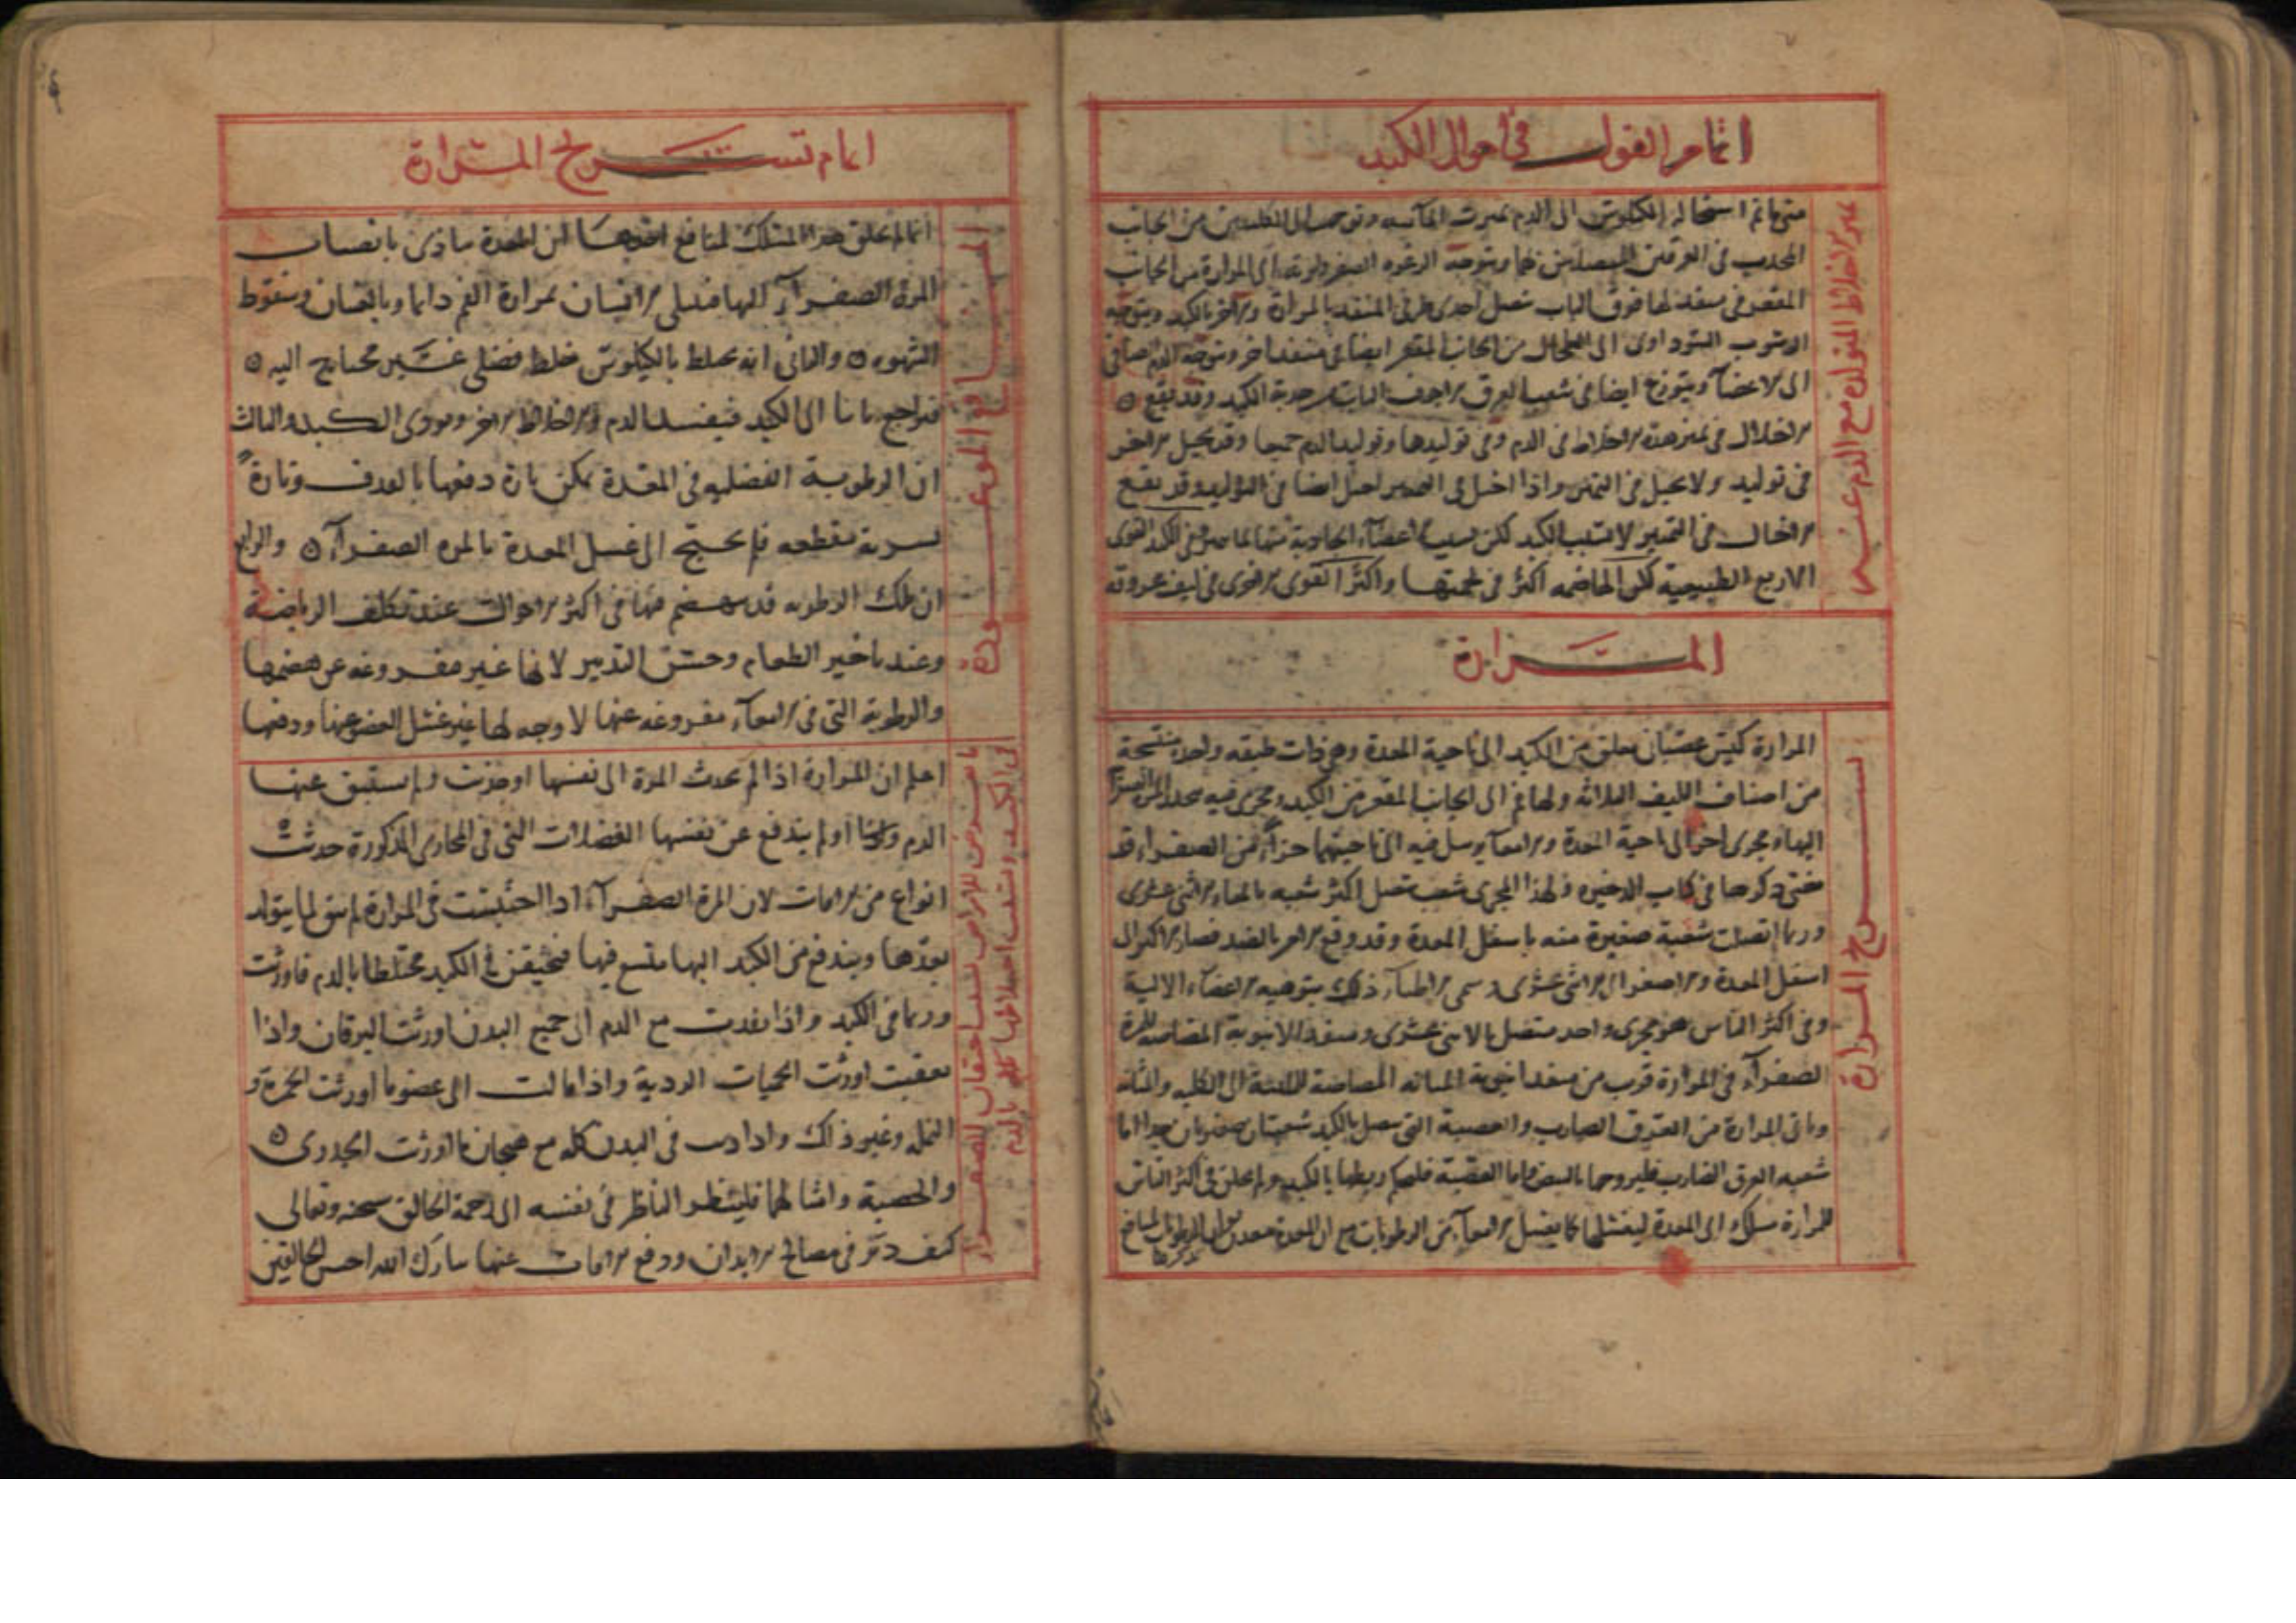 اتمام القول في احوال الكبد
متى ما تم استحالة الكيلوس الى الدم تميزت المائيه وتوجهت الى الكليتين من الجانب
المحدب في العرقين المتصلين بهما ويتوجه الرغوه الصفراويه الى المرارة من الجانب
المقعر في منفذ لها فوق الباب متصل احدى طرفى المنفذ بالمرارة والاخر بالكبد ويتوجه
الرسوب السوداوى الى الطحال من الجانب المقعر ايضا في منفذ اخر ويتوجه الدم صافى
الى الاعضآ ويتوزع ايضا فى شعب العرق الاجوف النابت من حدبة الكبد وقد يقع
الاخلال في تميز هذه الاخلاط في الدم وفي توليدها وتوليد الدم جميعا وقد يخيل الاخر
في توليد ولا يخيل في التميز واذا اختل فى التميز اختل ايضا في التوليد وقد يقع
الاخلال في التميز لا لسبب الكبد لكن لسبب الاعضآء الجاذبة منها لما يتميز في الكبد القوى
الاربع الطبيعية لكن الهاضمه اكثر فى لحميتها واكثر القوى الاخرى في ليف عروقه
تميز الاخلاط المتولدة مع الدم عنه
المرارة
المرارة كيس عصبانى معلق من الكبد الى ناحية المعدة وهي ذات طبقه واحدة منتسجة
من اصناف الليف الثلاثه ولها فم الى الجانب المقعر من الكبد ومجرى فيه تنحدر المرة الصفرآ
اليها ومجرى اخر الى ناحية المعدة والامعآء يرسل فيه الى ناحيتهما جزآء من الصفرآء قد
مضى ذكرها في كتاب الذخيره ولهذا المجرى شعب تتصل اكثر شعبه بالمعاء الاثنى عشرى
وربما اتصلت شعبة صغيرة منه باسفل المعدة وقد وقع الامر بالضد فصار الاكثر الى
اسفل المعدة والاصغر الى الاثنى عشرى وسمى الاطبآء ذلك بتوهيه الاعضآء الالية
وفى اكثر الناس هو مجرى واحد متصل بالاثنى عشرى ومنفذ الانبوبة المصاصه للمرة
الصفرآء في المرارة قريب من منفذ انبوبة المثانه المصاصة للمائية الى الكليه والمثانه
وياتى المرارة من العرق الضارب والعصبة التى تتصل بالكبد شعبتان صغيرتان جدا اما
شعبه العرق الضارب فليروحها بالنبض واما العصبة فليحكم ربطها بالكبد ولم يخلق فى اكثر الناس
للمرارة مسلك الى المعدة ليغسلها كما يغسل الامعآء من الرطوبات مع ان المعدة معدن تولد الرطوبات لمنافع
نذكرها
تشريح المرارة
اتمام تشريح المرارة
انما لم يخلق هذا المسلك لمنافع احدها ان المعدة يتاذى بانصباب
المرة الصفرآء اليها فيبتلى الانسان بمرارة الفم دايما وبالغثيان وسقوط
الشهوه ه والثانى انه يختلط بالكيلوس خلط فضلى غير محتاج اليه ه
فيراجع ثانيا الى الكبد فيفسد الدم والاخلاط الاخر ويوذى الكبد والثالث
ان الرطوبة الفضليه فى المعدة يمكن تارة دفعها بالقذف وتارة
بشربة مقطعه فلم يحتج الى غسل المعدة بالمره الصفرآء ه والرابع
ان تلك الرطوبه قد ينهضم فيها فى اكثر الاحوال عند تكلف الرياضة
وعند تاخير الطعام وحسن التدبير لانها غير مفروغه عن هضمها
والرطوبة التى فى الامعآء مفروغه عنها لا وجه لها غير غسل العضو عنها ودفعها
المنافع الموعودة
اعلم ان المرارة اذا لم تجذب المرة الى نفسها او جذبت ولم يستبق عنها
الدم والكبد او لم يندفع عن نفسها الفضلات التى فى المجارى المذكورة حدثت
انواع من الافات لان المرة الصفرآء اذا احتبست فى المرارة لم يبق لما يتولد
بعدها ويندفع من الكبد اليها متسع فيها فيحتقن في الكبد مختلطا بالدم فاورثت
ورما في الكبد واذا نفذت مع الدم الى جميع البدن اورثت اليرقان واذا
تعفنت اورثت الحميات الردية واذا مالت الى عضو ما اورثت الحمرة و
النمله وغير ذلك واذا دب فى البدن كله مع هيجان ما اورثت الجدرى ه
والحصبة وامثالهما فلينظر الناظر فى نفسه الى رحمة الخالق سبحنه وتعالى
كيف دبر فى مصالح الابدان ودفع الافات عنها تبارك الله احسن الخالقين